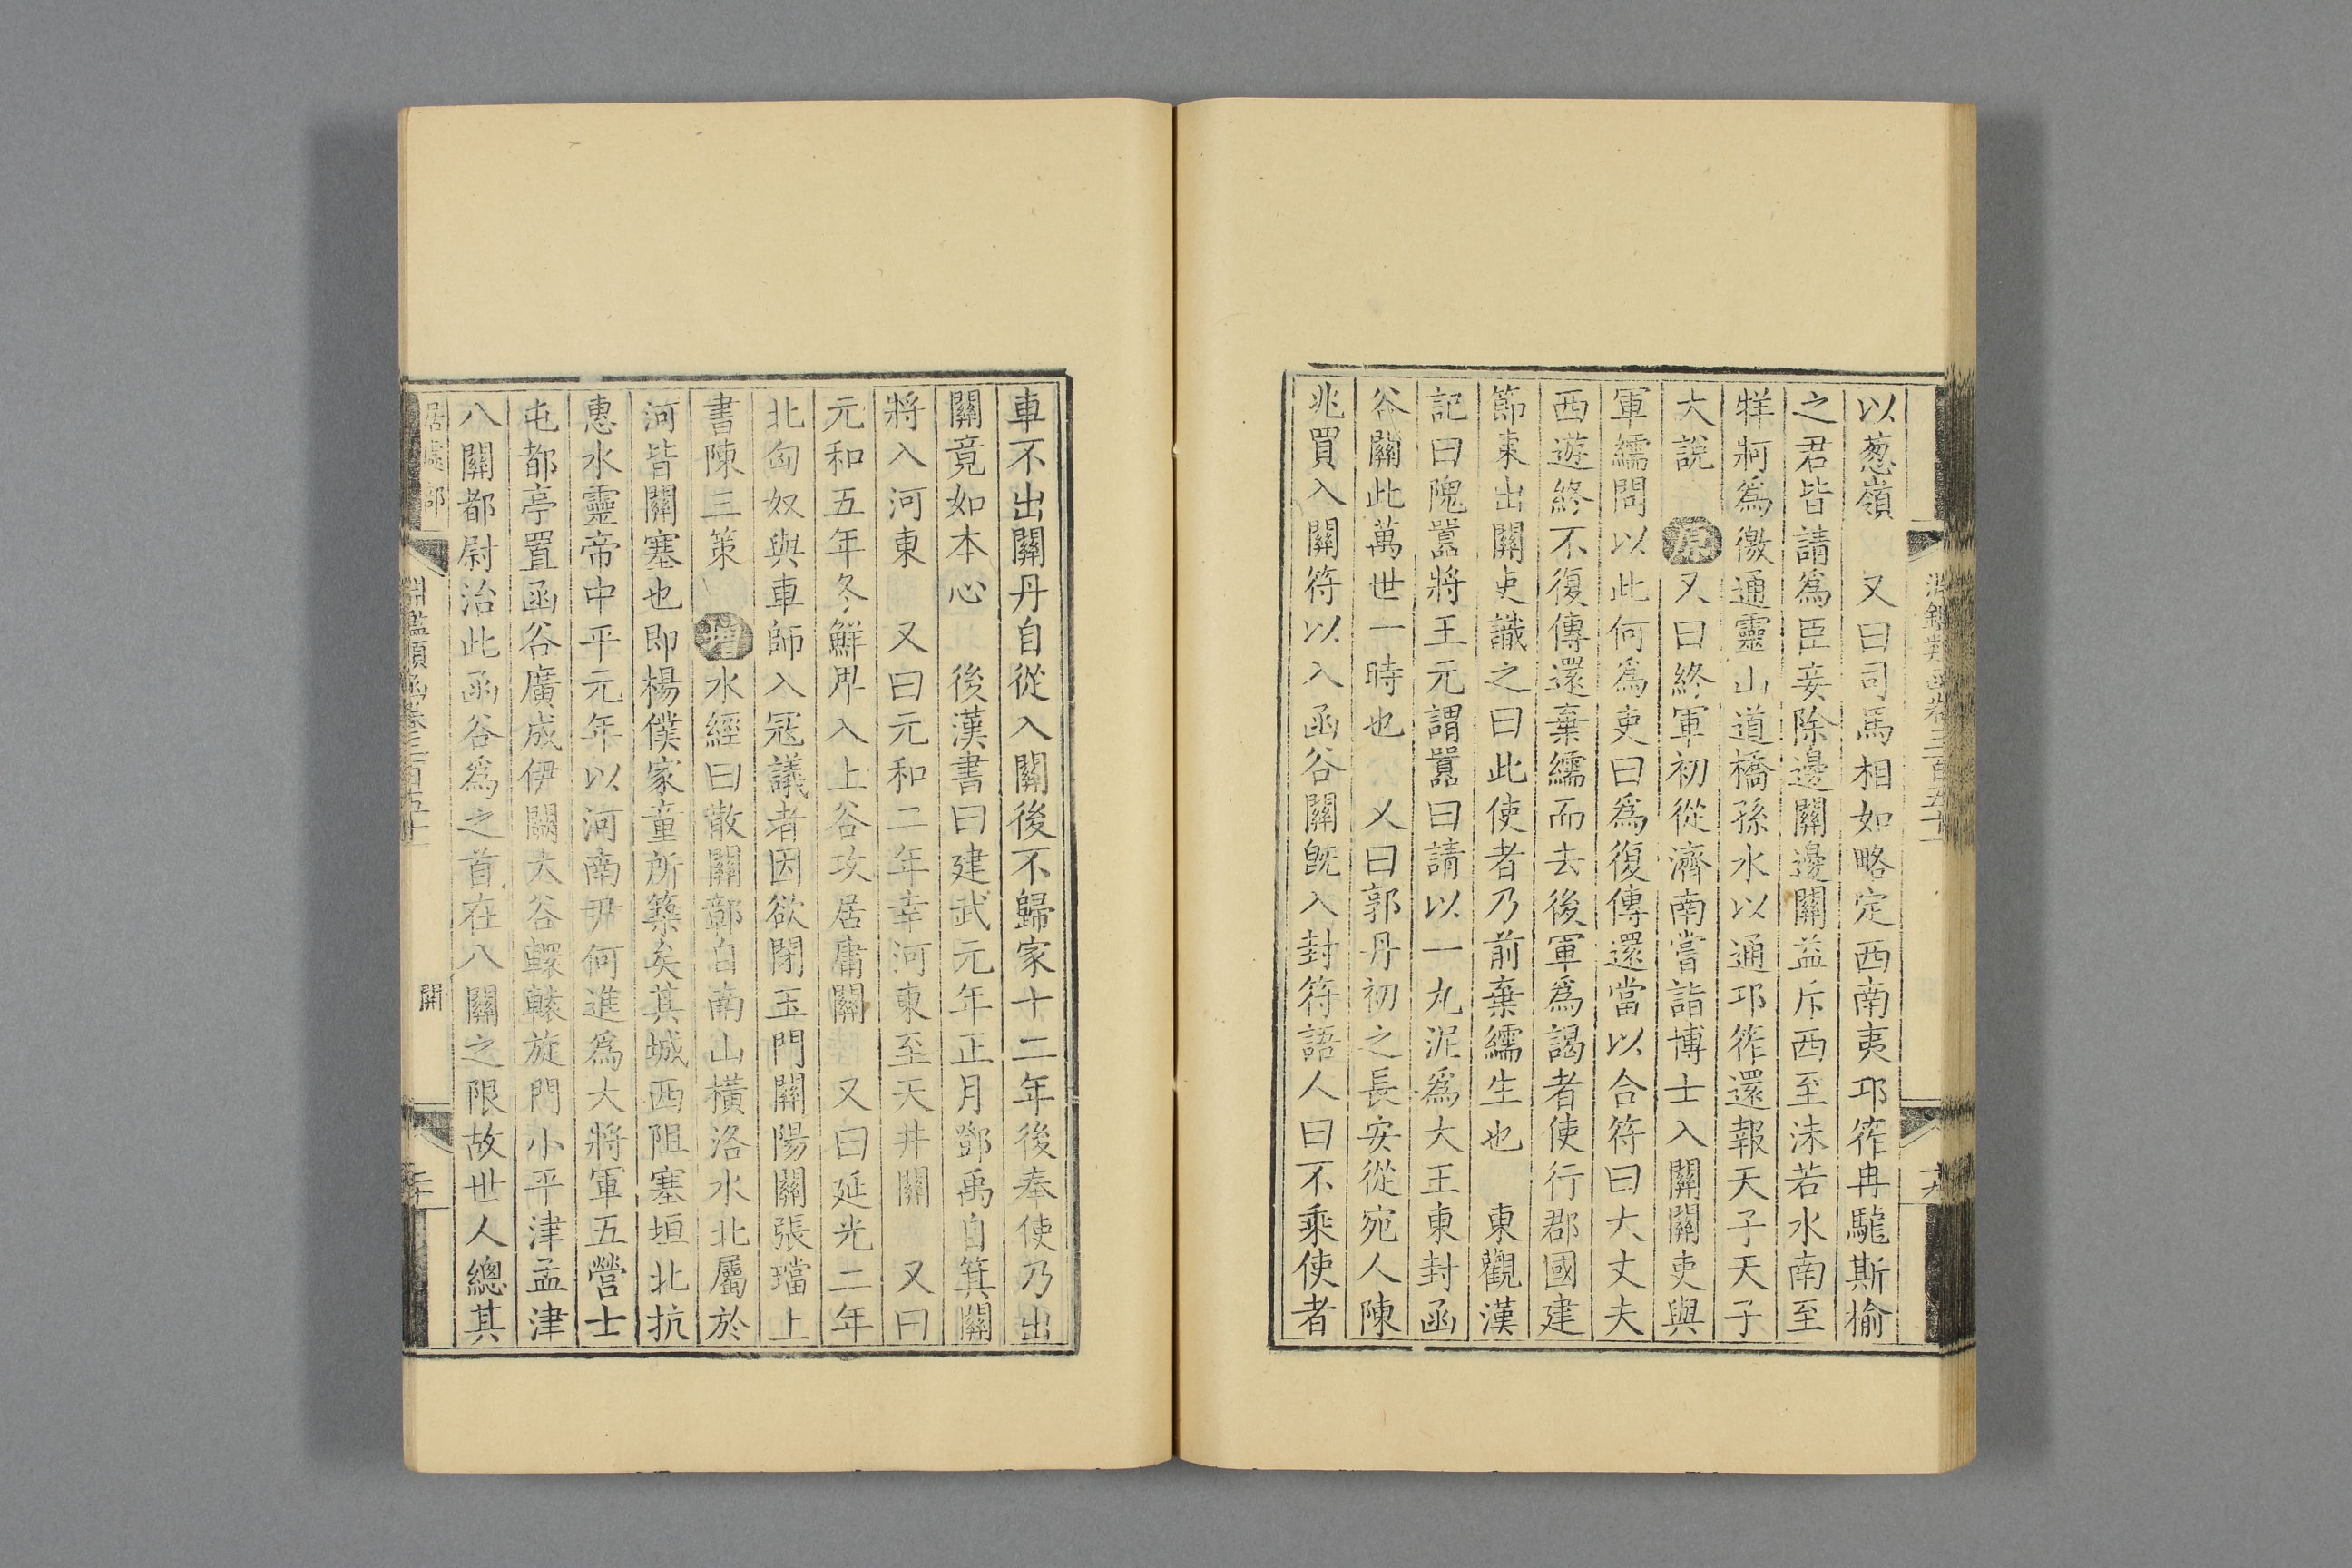 以葱嶺　又曰司馬相如略定西南夷邛筰冉駹斯榆
之君皆請爲臣妾除邊關邊關益斥西至沬若水南至
牂牁爲徼通靈山道橋孫水以通邛筰還報天子天子
大說　原又曰終軍初從濟南嘗詣博士入關關吏與
軍繻問以此何爲吏曰爲復傳還當以合符曰大丈夫
西遊終不復傳還棄繻而去後軍爲謁者使行郡國建
節東出關吏識之曰此使者乃前棄繻生也　東觀漢
記曰隗囂將王元謂囂曰請以一丸泥爲大王東封函
谷關此萬世一時也　又曰郭丹初之長安從宛人陳
兆買入關符以入函谷關旣入封符語人曰不乘使者
車不出關丹自從入關後不歸家十二年後奉使乃出
關竟如本心　後漢書曰建武元年正月鄧禹自箕關
將入河東　又曰元和二年幸河東至天井關　又曰
元和五年冬鮮卑入上谷攻居庸關　又曰延光二年
北匈奴與車師入冦議者因欲閉玉門關陽關張璫上
書陳三策　增水經曰散關鄣自南山橫洛水北屬於
河皆關塞也即楊僕家童所築矣其城西阻塞垣北抗
惠水靈帝中平元年以河南尹何進爲大將軍五營士
屯都亭置函谷廣成伊闕大谷轘轅旋門小平津孟津
八關都尉治此函谷爲之首在八關之限故世人總其
居處部　淵鑑類函卷三百五十一　關　二十